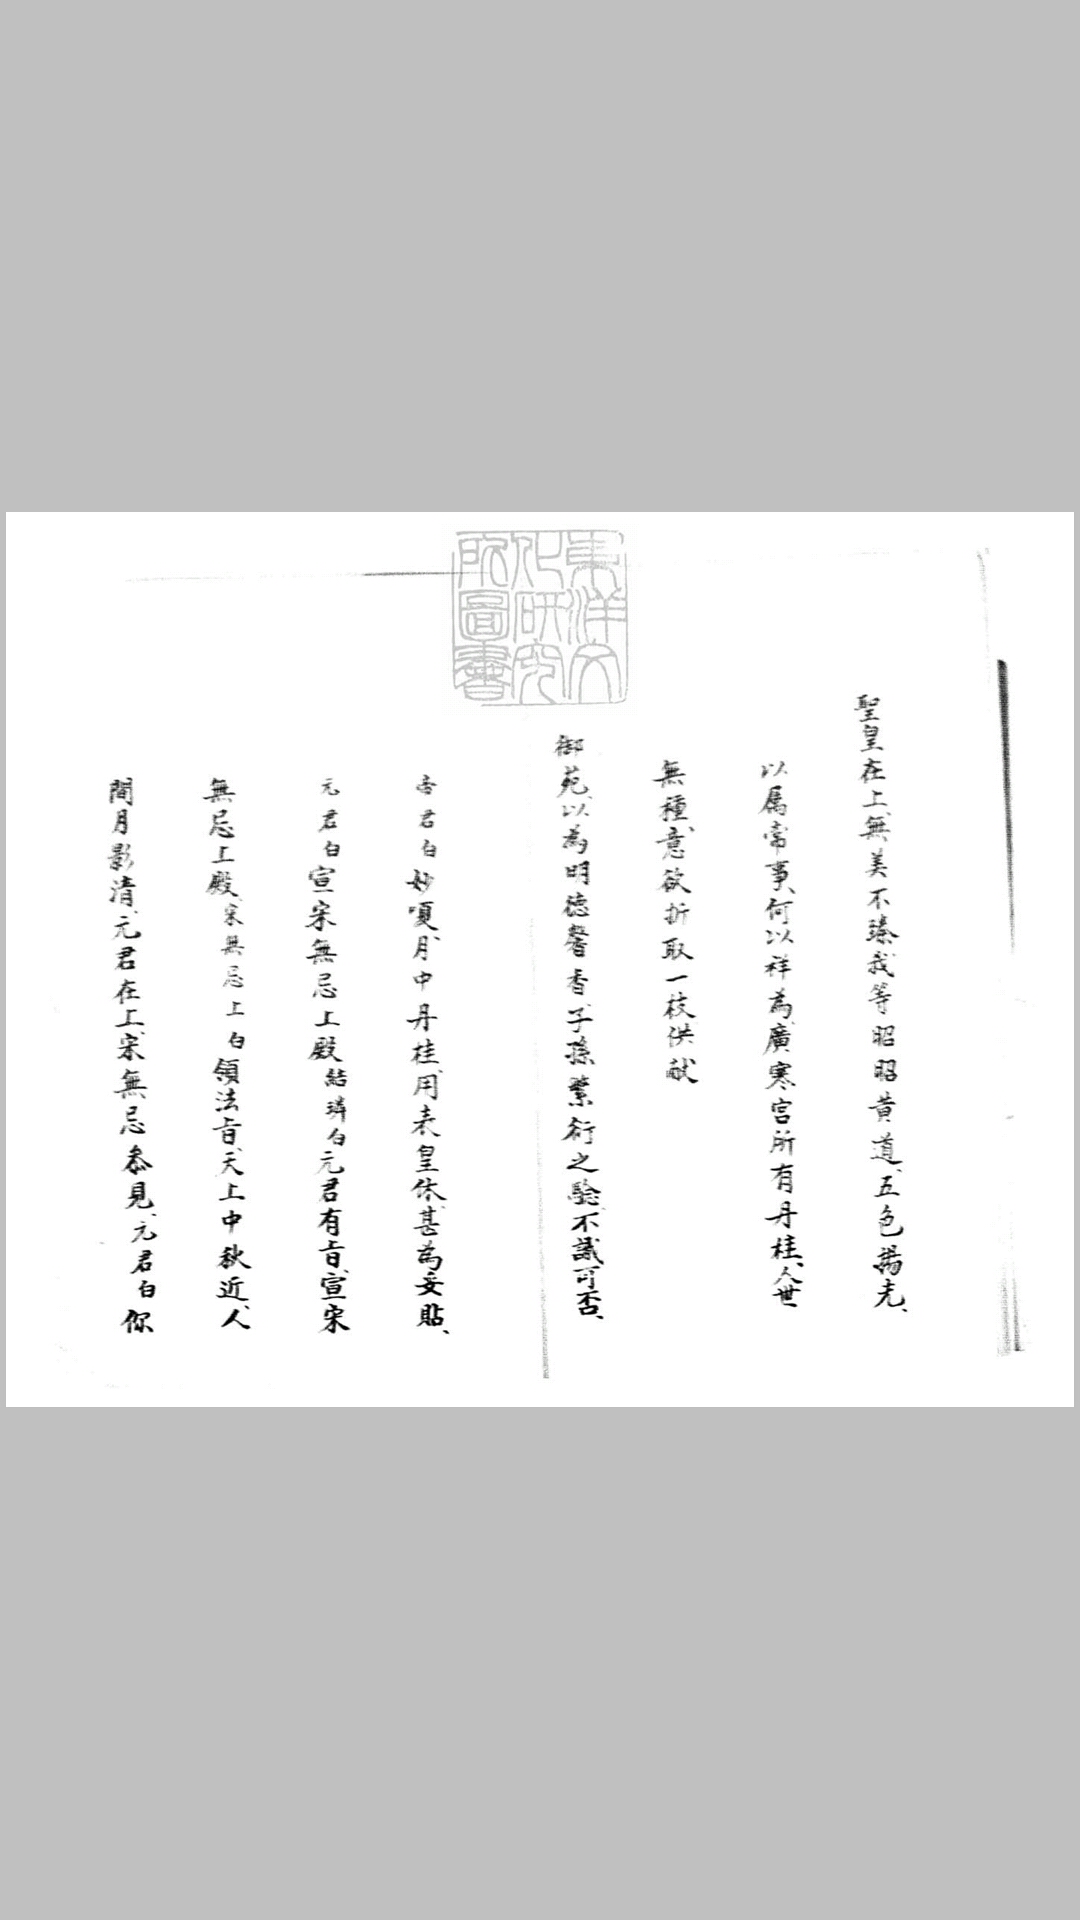 東洋文
化研究
所圖書
聖皇在上、無美不臻、我等昭昭黄道、五色揚光、
以属常事、何以祥為、廣寒宮所有丹桂、人世
無種、意欲折取一枝供献
御苑、以為明徳馨香、子孫繁衍之驗、不識可否、
帝君白妙嗄、月中丹桂、用表皇休、甚為妥貼、
元君白宣宋無忌上殿結璘白元君有旨、宣宋
無忌上殿、宋無忌上白領法旨、天上中秋近、人
間月影清、元君在上、宋無忌叅見、元君白你